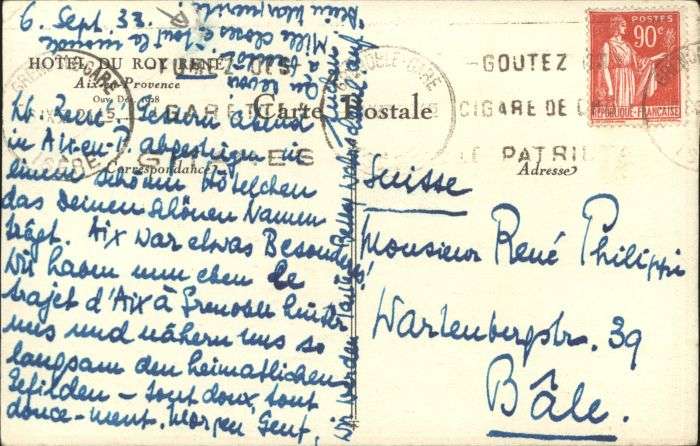 6. Sept. 33.
HOTEL DU ROY RENÉ
Aix-en-Provence
Carte Postale
Correspondance
Adresse
POSTES
90c
REPUBLIQUE FRANÇAISE
GRENOBLE-GARE
ISÈRE
GRENOBLE-GARE
GOUTEZ
CIGARE DE
LE PATRI
Lb. René - Gestern abend
in Aix-en-P. abgestiegen in
einem schönen Hôtelchen
das Deinen schönen Namen
trägt. Aix war etwas Besonderes!
Wir haben nun eben le
trajet d'Aix à Grenoble hinter
uns und nähern uns so
langsam den heimatlichen
Gefilden - tout doux, tout
douce-ment. Morgen Genf,
wir werden
Au revoir
Mille choses à tout le monde
Suisse
Monsieur René Philippi
Wartenbergstr. 39
Bâle.